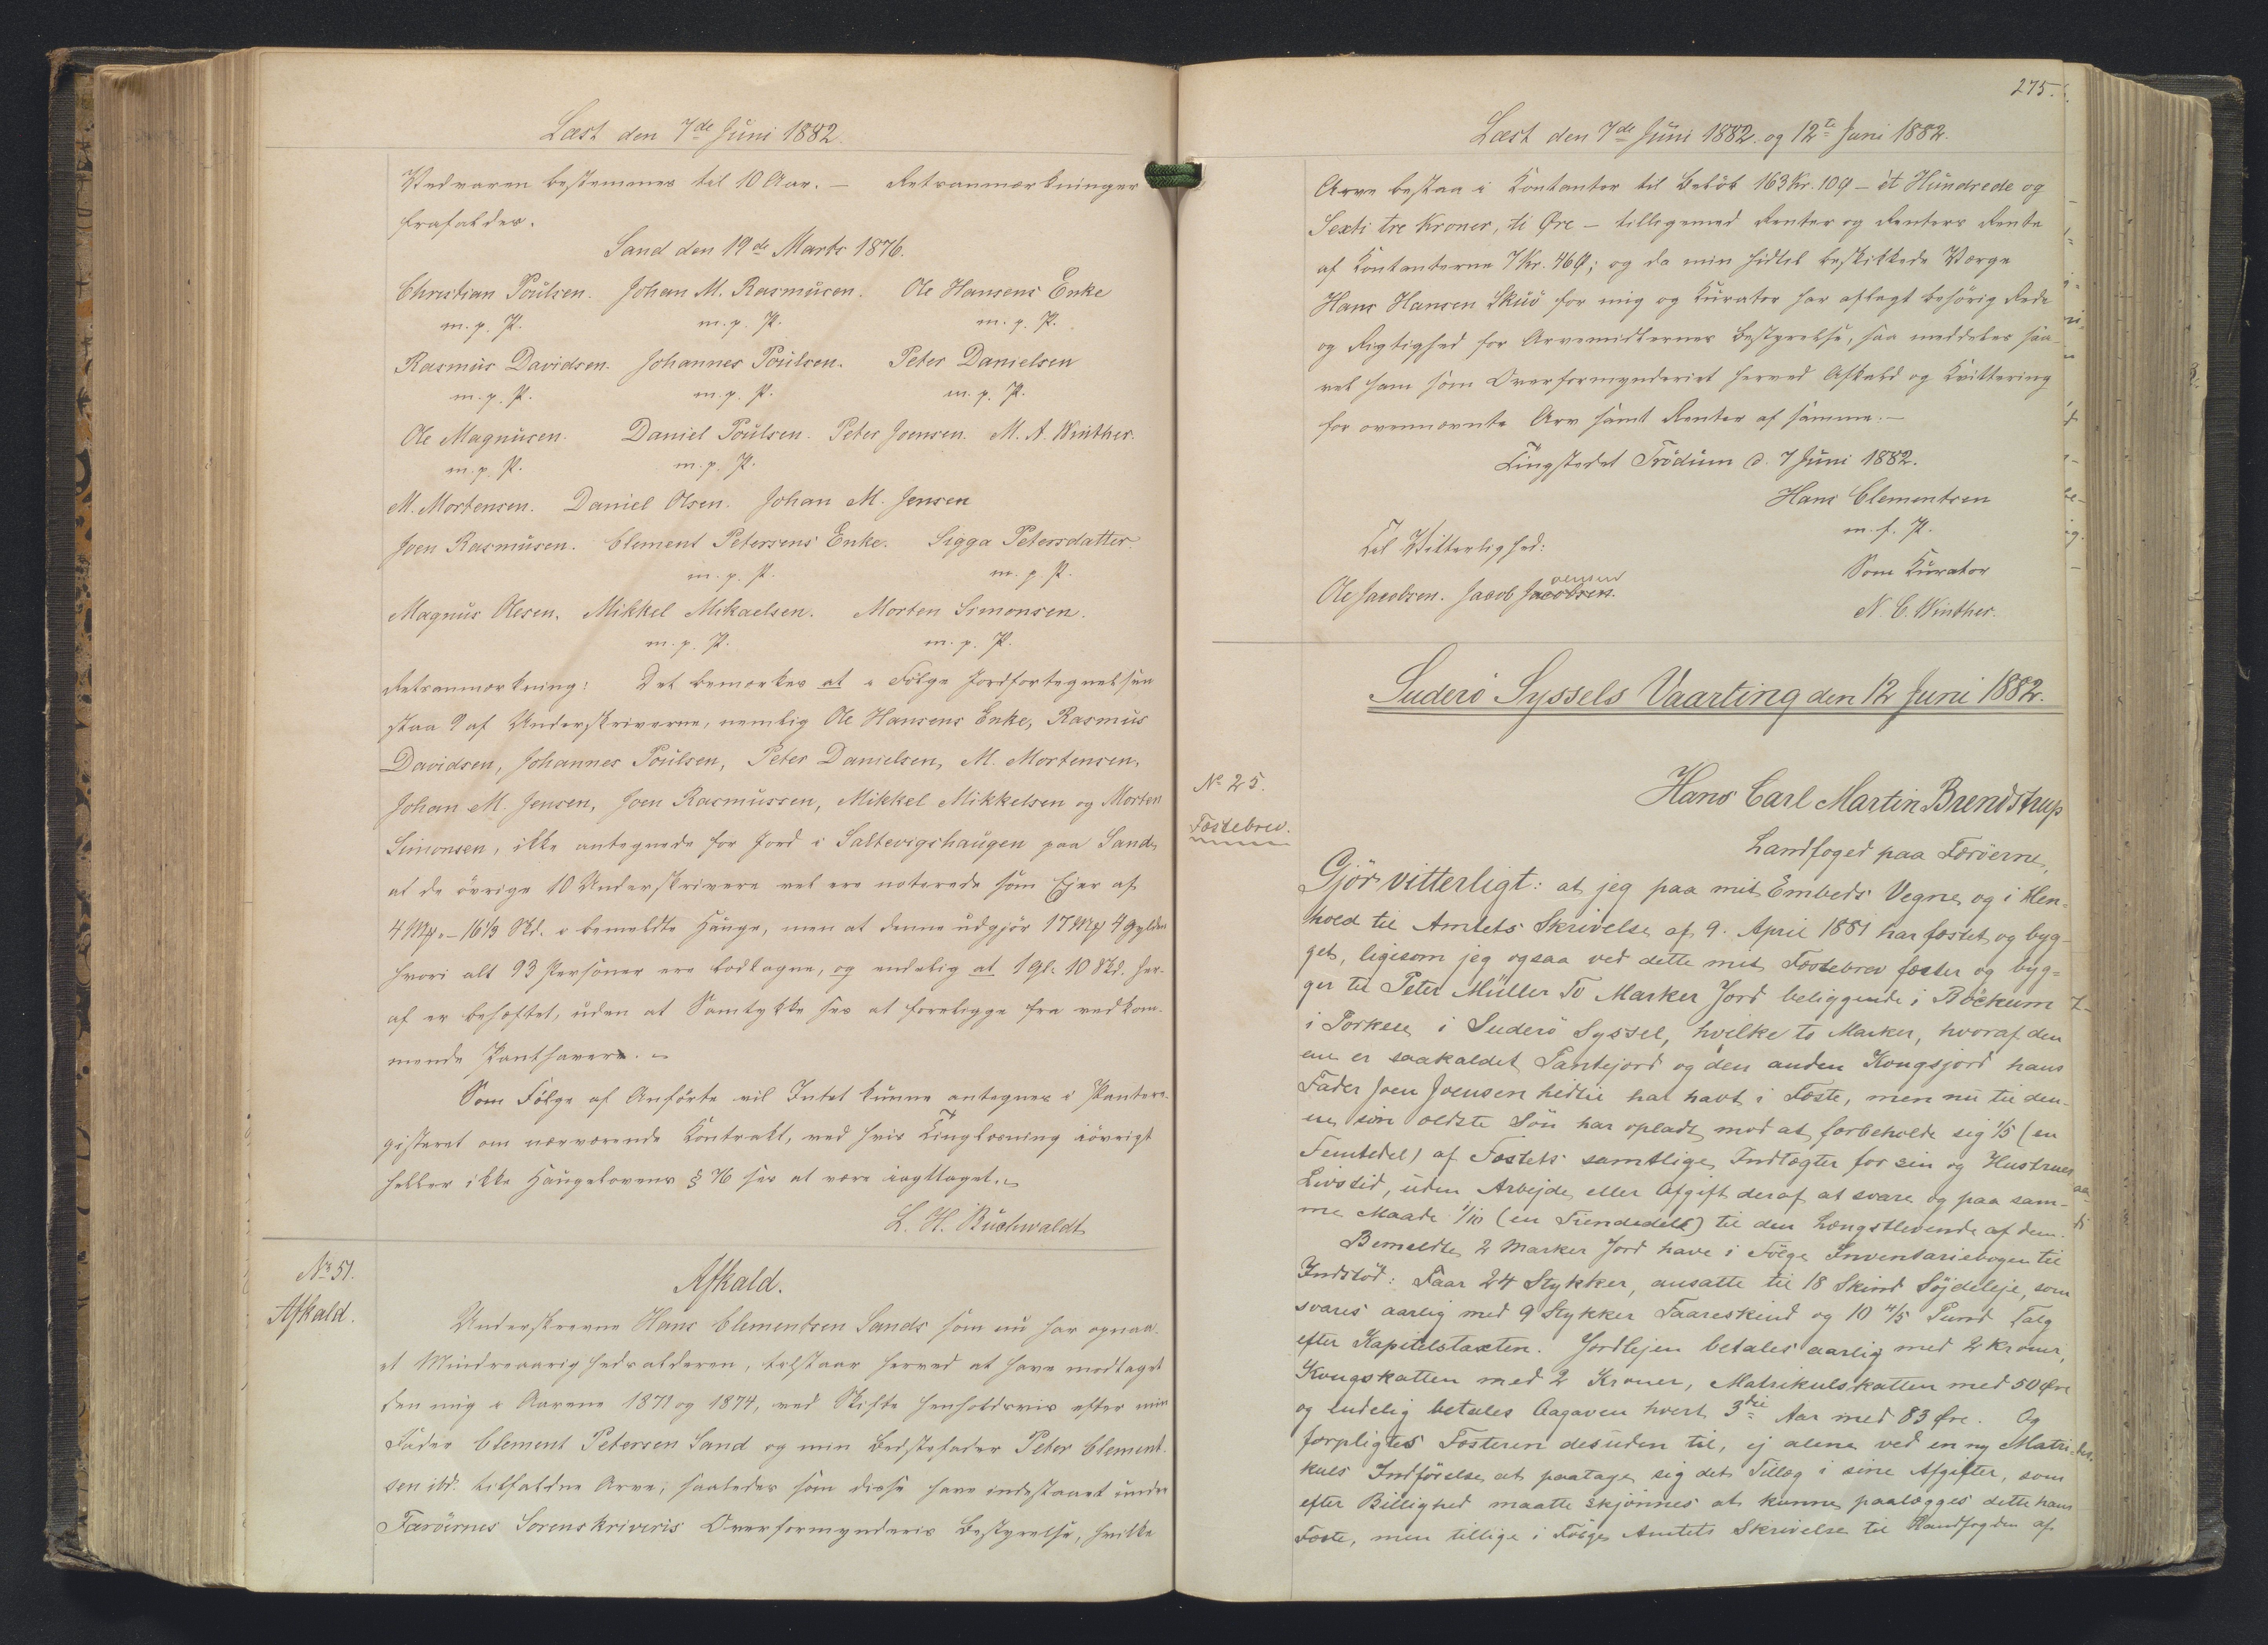 Læst den 7de Juni 1882.
Vedvaren bestemmes til 10 Aar. — Retsanmærkninger
frafaldes.
Sand den 19de Marts 1876.
Christian Poülsen. Johan M. Rasmüsen. Ole Hansens Enke
m. p. P. m. p. P. m. p. P.
Rasmüs Davidsen. Johannes Poülsen. Peter Danielsen
m. p. P. m. p. P. m. p. P.
Ole Magnüsen. Daniel Poülsen. Peter Joensen. M. A. Winther.
m. p. P. m. p. P.
M. Mortensen. Daniel Olsen. Johan M. Jensen
Joen Rasmüsen. Clement Petersens Enke. Sigga Petersdatter.
m. p. P. m. p. P.
Magnüs Olesen. Mikkel Mikaelsen. Morten Simonsen.
m. p. P. m. p. P.
Retsanmærkning: Det bemærkes at i Følge Jordfortegnelsen
staa 9 af Underskriverne, nemlig Ole Hansens Enke, Rasmüs
Davidsen, Johannes Poülsen, Peter Danielsen, M. Mortensen,
Johan M. Jensen, Joen Rasmüssen, Mikkel Mikkelsen og Morten
Simonsen, ikke antegnede for Jord i Saltevigshaügen paa Sand,
at de øvrige 10 Underskrivere vel ere noterede som Ejer af
4 Mk. – 16 1/3 Skd. i bemeldte Haüge, men at denne üdgjør 17 Mk 4 Gylden
hvori alt 93 Personer ere lodtagne, og endelig at 1 Gl. 10 Skd. her-
af er behæftet, üden at Samtykke ses at foreligge fra vedkom-
mende Panthavere. –
Som Følge af Anførte vil Intet künne antegnes i Pantere-
gisteret om nærværende Kontrakt, ved hvis Tinglæsning iøvrigt
heller ikke Haügelovens § 76 ses at være iagttaget. –
L. H. Büchwaldt
No 51.
Afkald.
Afkald.
Underskrevne Hans Clementsen Sands som nü har opnaa-
et Mindreaarighedsalderen, tilstaar herved at have modtaget
den mig i Aarene 1871 og 1874, ved Skifte henholdsvis efter min
Fader Clement Petersen Sand og min Bedstefader Peter Clement-
sen ibd. tilfaldne Arve, saaledes som disse have indestaaet ünder
Færøernes Sorenskriveris Overformynderis Bestyrelse, hvilke
275.
Læst den 7de Jüni 1882. og 12te Juni 1882.
Arve bestaa i Kontanter til Beløb 163 Kr. 10 Ø – èt Hündrede og
Sexti tre Kroner, ti Øre – tilligemed Renter og Renters Rente
af Kontanterne 7 Kr. 46 Ø; og da min hidtil beskikkede Værge
Hans Hansen Skuö for mig og Kürator har aflagt behørig Rede
og Rigtighed for Arvemidlernes Bestyrelse, saa meddeles saa-
vel ham som Overformynderiet herved Afkald og Kvittering
for ovennævnte Arv samt Renter af samme. –
Tingstedet Trödüm d. 7 Jüni 1882.
Hans Clementsen
m. f. P.
Til Vitterlighed:
Som Kürator
Ole Jacobsen. Jacob Jacobsen.
N. C. Winther.
Suderö Syssels Vaarting den 12 Juni 1882.
No 25.
Fæstebrev.
Hans Carl Martin Brendstrup
Landfoged paa Færöerne,
Gjör vitterligt: at jeg paa mit Embeds Vegne og i Hen-
hold til Amtets Skrivelse af 9. April 1881 har fæstet og byg-
get, ligesom jeg ogsaa ved dette mit Fæstebrev fæster og byg-
ger til Peter Müller To Marker Jord beliggende i
i Porkere i Suderö Syssel, hvilke to Marker, hvoraf den
ene er saakaldet Pantejord og den anden Kongsjord hans
Fader Joen Joensen hidtil har havt i Fæste, men nü til den-
ne sin ældste Sön har opladt mod at forbeholde sig 1/5 (en
Femtedel) af Fæstets samtlige Indtægter for sin og Hustrues
Livstid, uden Arbejde eller Afgift deraf at svare og paa sam-
me Maade 1/10 (en Tiendedel) til den Længstlevende af dem.
Bemeldte 2 Marker Jord have i Fölge Inventariebogen til
Indstöd: Faar 24 Stykker, ansatte til 18 Skind Söjdeleje, som
svares aarlig med 9 Stykker Faareskind og 10 4/5 Pund Talg
efter Kapitelstaxten. Jordlejen betales aarlig med 2 Kroner,
Kongsskatten med 2 Kroner, Matrikulskatten med 50 Øre
og endelig betales Aagaven hvert 3die Aar med 83 Øre. Og
forpligtes Fæsteren desüden til, ej alene ved en ny Matri-
kuls Indförelse at paatage sig det Tillæg i sine Afgifter, som
efter Billighed maatte skjönnes at kunne paalægges dette hans
Fæste, men tillige i Fölge Amtets Skrivelse til Landfogden af